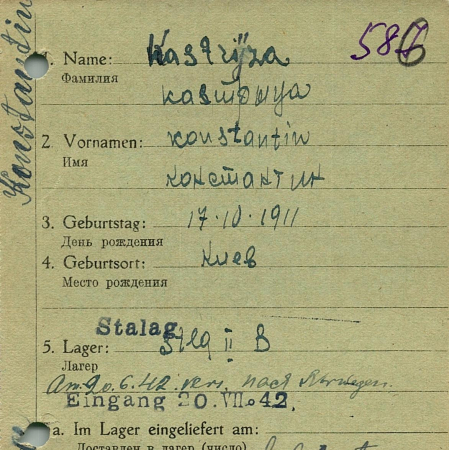 Konstantin
586
1. Name: Kastrÿza
Фамилия
2. Vornamen: Konstantin
Имя
Константин
3. Geburtstag: 17.10.1911
День рождения
4. Geburtsort: Киев
Место рождения
Stalag
5. Lager: Stlg II B
Лагер
Am 20.6.42 vers. nach Norwegen.
Eingang 20. VII. 42.
a. Im Lager eingeliefert am:
Доставлен в лагер (число)